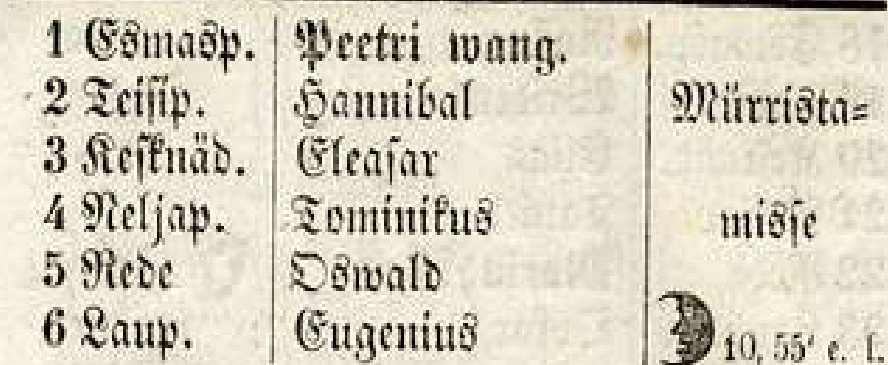 1 Esmasp. Peetri wang.
2 Teisip. Hannibal Mürrista=
3 Kesknäd. Eleasar
4 Neljap. Tominikus misse
5 Rede Oswald
6 Laup. Eugenius 10, 55' e. l.